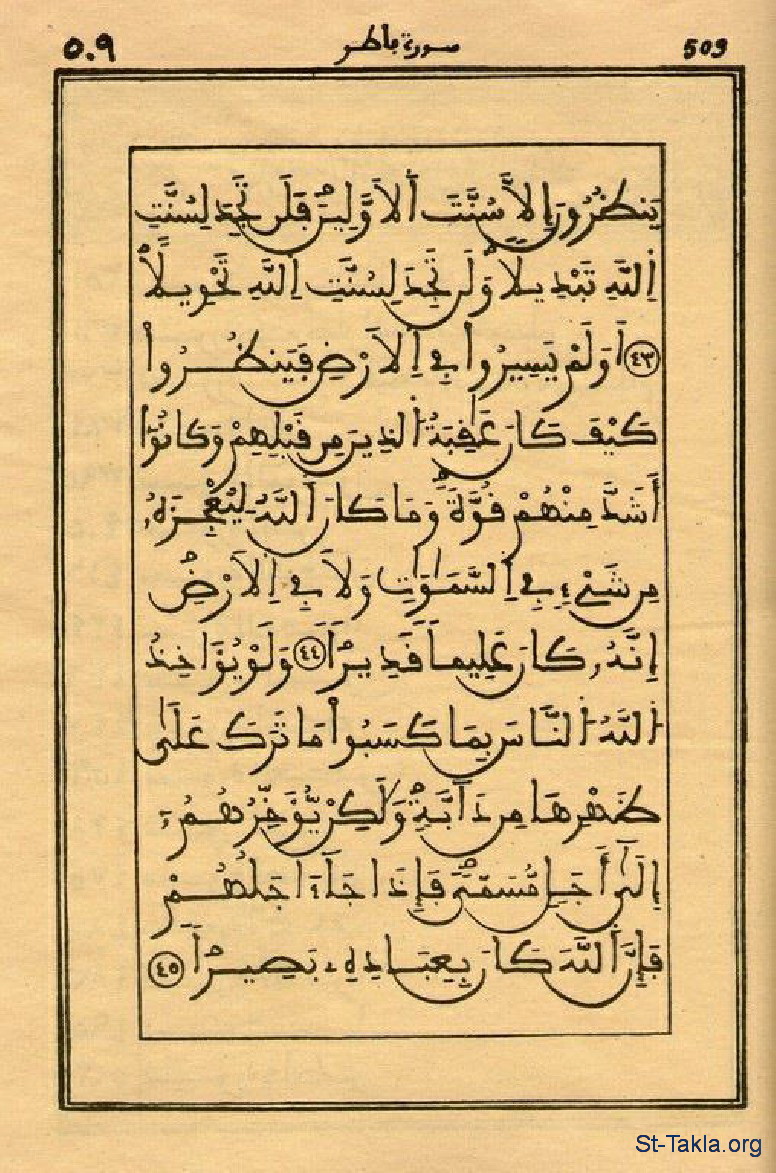 ٥٠٩ سورة ڢاطر 503
يَنظُرُونَ إِلَّا سُنَّتَ اَلَاوَّلِينَۖ ڢَلَن تَجِدَ لِسُنَّتِ
اِللَّهِ تَبْدِيلاًۖ وَلَن تَجِدَ لِسُنَّتِ اِللَّهِ تَحْوِيلاًۖ
٤٣ اَوَلَمْ يَسِيرُواْ ڢِے اِلَارْضِ ڢَيَنظُرُواْ
كَيْڢَ كَانَ عَٰڧِبَةُ اُلذِينَ مِن ڧَبْلِهِمْ وَكَانُوٓاْ
أَشَدَّ مِنْهُمْ ڧُوَّةٗۖ وَمَا كَانَ اَللَّهُ لِيُعْجِزَهُۥ
مِن شَےْءٖ ڢِے اِلسَّمَٰوَٰتِ وَلَا ڢِے اِلَارْضِۖ
إِنَّهُۥ كَانَ عَلِيماٗ ڧَدِيراٗ ٤٤ وَلَوْ يُوَاخِذُ
اُللَّهُ اُلنَّاسَ بِمَا كَسَبُواْ مَا تَرَكَ عَلَىٰ
ظَهْرِهَا مِن دَآبَّةٖۖ وَلَٰكِنْ يُّوَخِّرُهُمُۥٓ
إِلَىٰٓ أَجَلٖ مُّسَمّيٗۖ ڢَإِذَا جَآءَ اجَلُهُمْ
ڢَإِنَّ اَللَّهَ كَانَ بِعِبَادِهِۦ بَصِيراٗۖ ٤٥
St-Takla.org